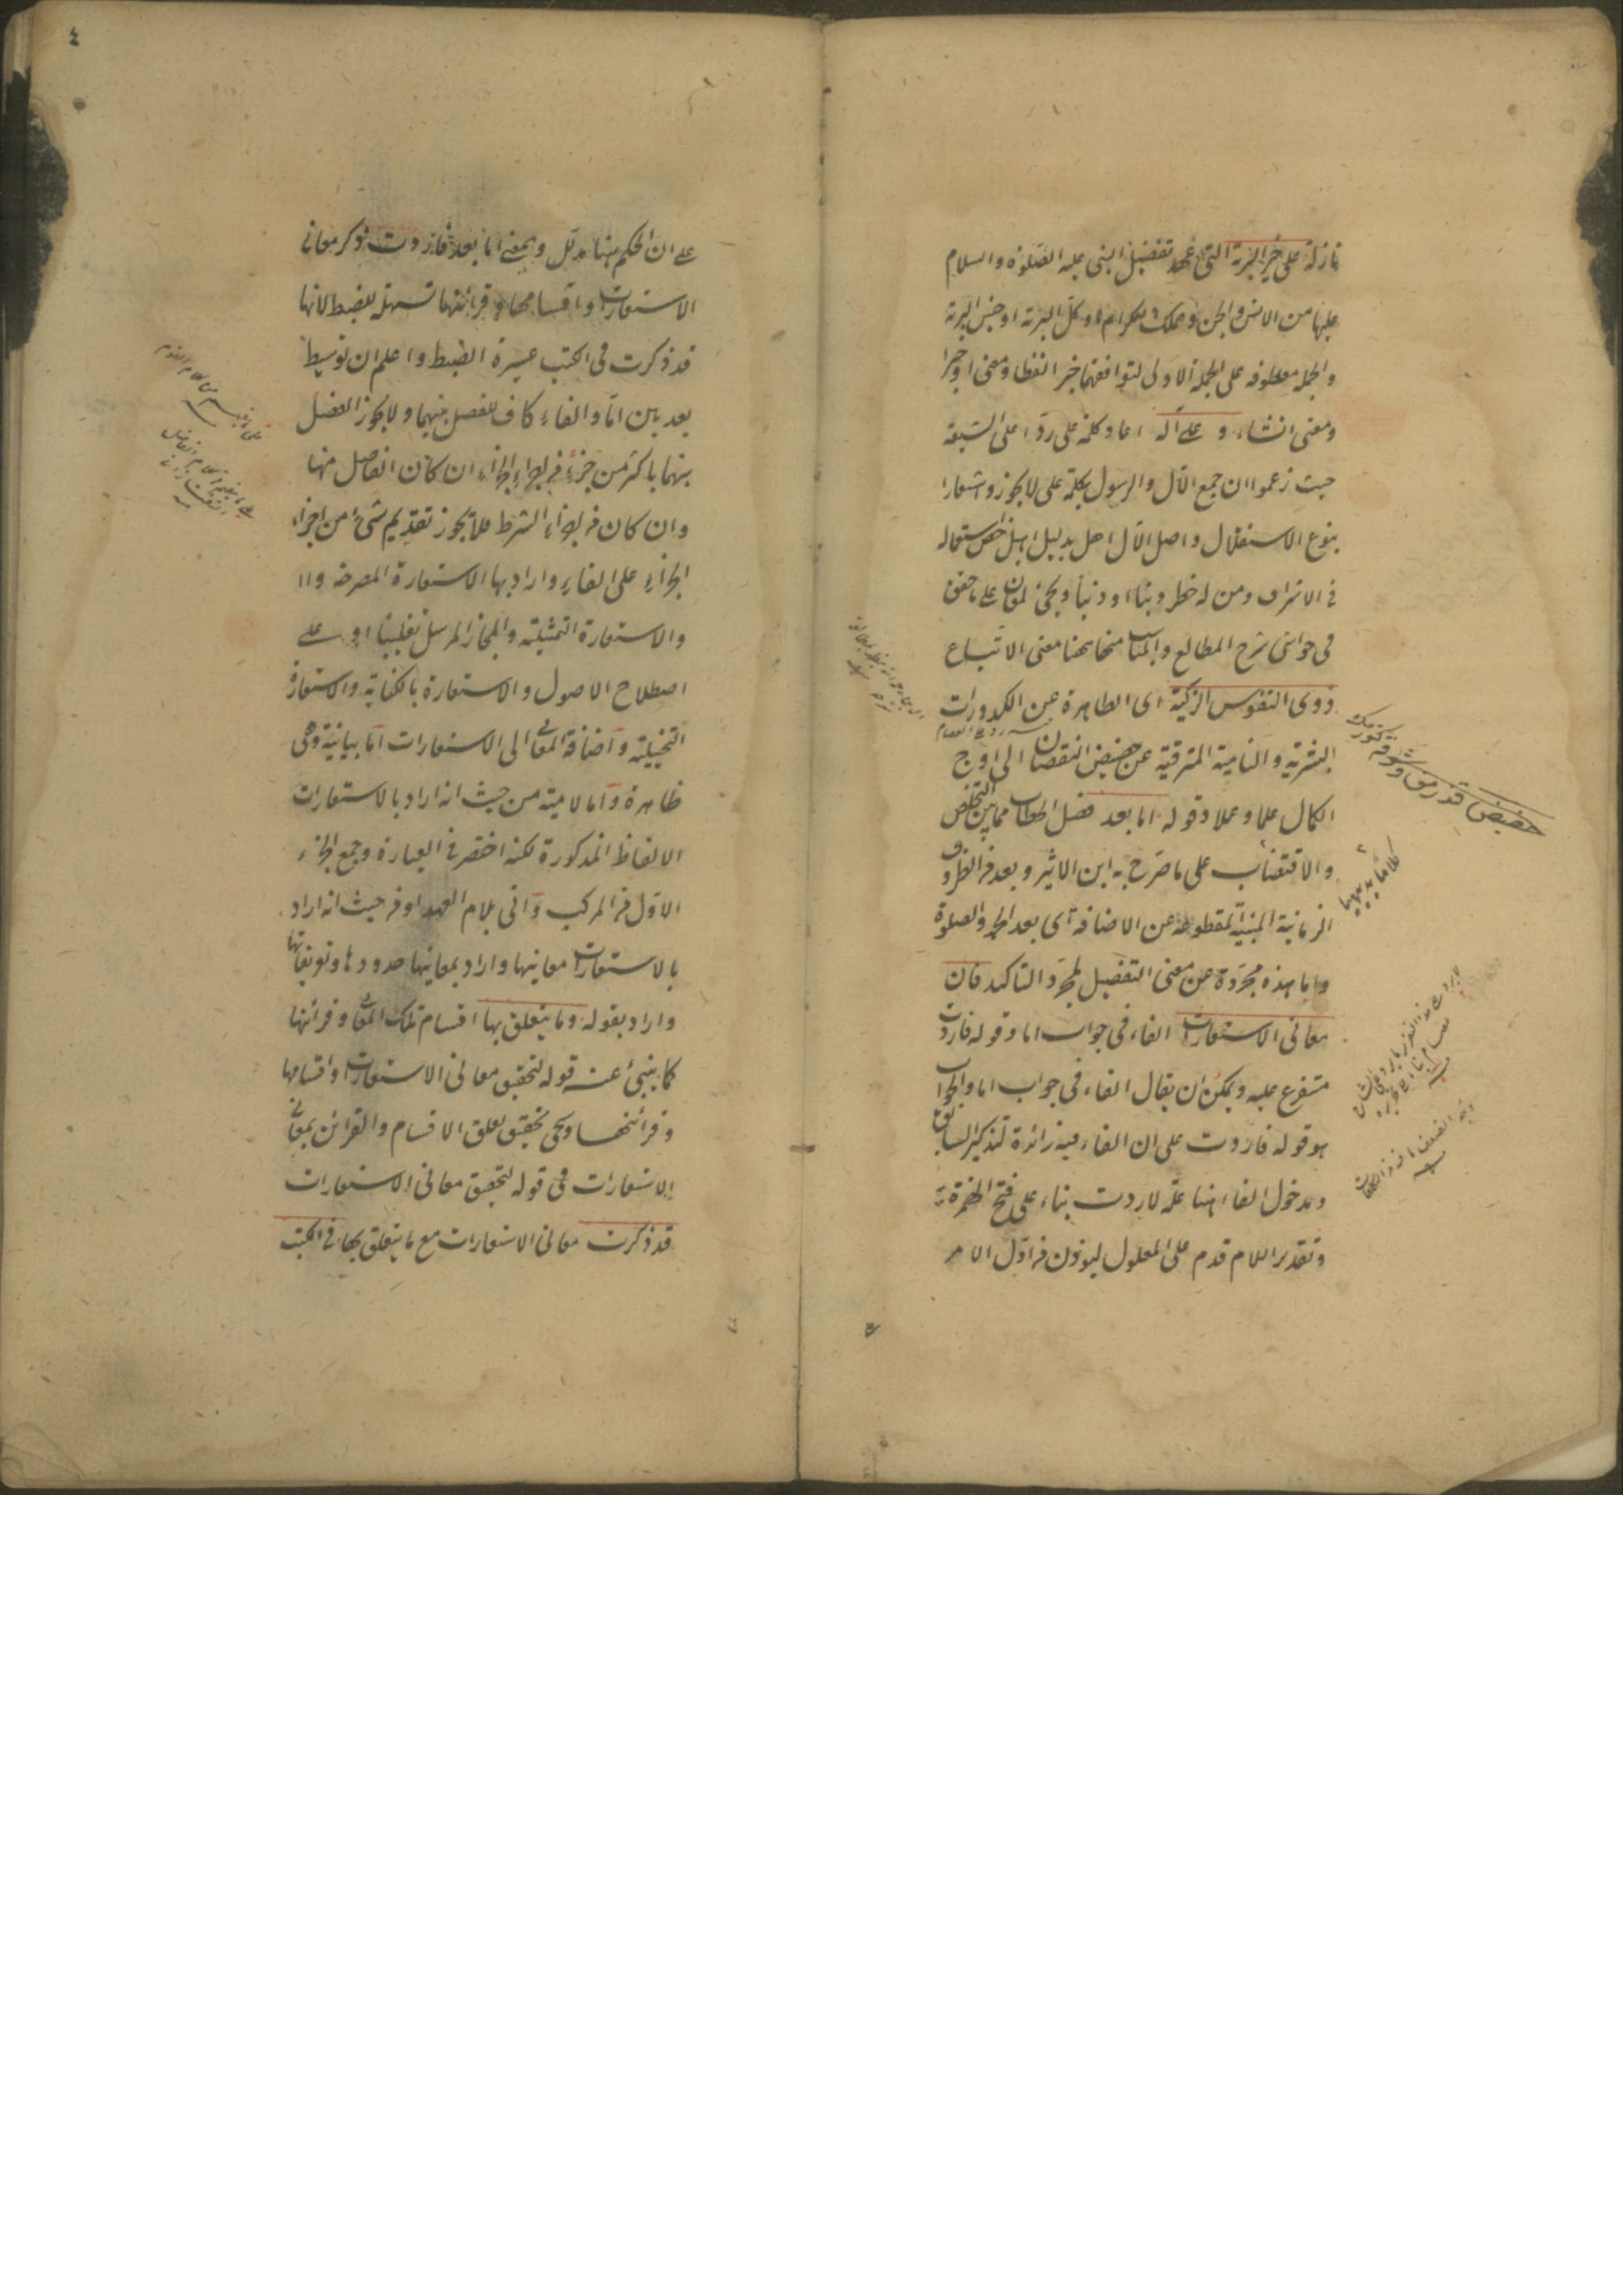 نازلة على خير البرية التى عهد تفضيل النبى عليه الصلوة والسلام
عليها من الانس والجن والملك الكرام او كل البرية او جنس البرية
والجملة معطوفة على الجملة الاولى لتوافقهما خبرا لفظا ومعنى او خبرا
ومعنى انشاء و على آله اعاد كلمة على ردا على الشيعة
حيث زعموا ان جمع الآل والرسول بكلمة على لا يجوز واشعارا
بنوع الاستقلال واصل الآل اهل بدليل اهيل خص استعماله
فى الاشراف ومن له خطر دينا او دنيا ويجئ لمعان على ما حقق
فى حواشى شرح المطالع والمناسب ههنا معنى الاتباع
ذوى النفوس الزكية اى الطاهرة عن الكدورات
البشرية والنامية المترقية عن حضيض النقصان الى اوج
الكمال علما وعملا وقوله اما بعد فصل الخطاب مما بين التخلص
والاقتضاب على ما صرح به ابن الاثير وبعد من الظروف
الزمانية المبنية المقطوعة عن الاضافة اى بعد الحمد والصلوة
واما هذه مجردة عن معنى التفصيل لمجرد التاكيد فان
معانى الاستعارات الفاء فى جواب اما وقوله فاردت
متفرع عليه ويمكن ان يقال الفاء فى جواب اما والجواب
هو قوله فاردت على ان الفاء فيه زائدة لتذكير السابق
ومدخول الفاء ههنا علة لاردت بناء على فتح الهمزة
وتقدير اللام قدم على المعلول ليؤذن من اول الامر
حضيض
على ان الحكم ههنا مدلل وبمعنى اما بعد فاردت ذكر معانى
الاستعارات واقسامها وقرائنها تسهيلا للضبط لانها
قد ذكرت فى الكتب عسيرة الضبط واعلم ان توسيط
بعد بين اما والفاء كاف للفصل بينهما ولا يجوز الفصل
بينهما باكثر من جزء من اجزاء الجزاء ان كان الفاصل منها
وان كان من اجزاء الشرط فلا يجوز تقديم شئ من اجزاء
الجزاء على الفاء واراد بها الاستعارة المصرحة وا
والاستعارة التمثيلية والمجاز المرسل تغليبا او على
اصطلاح الاصول والاستعارة بالكناية والاستعارة
التخييلية واضافة المعانى الى الاستعارات اما بيانية وهى
ظاهرة واما لامية من حيث انه اراد بالاستعارات
الالفاظ المذكورة لكنه اختصر فى العبارة وجمع الجزء
الاول من المركب واتى بلام العهد اوفر حيث انه اراد
بالاستعارات معانيها واراد بمعانيها حدودها وتعريفاتها
واراد بقوله وما يتعلق بها اقسام تلك المعانى وقرائنها
كما ينبئ عنه قوله لتحقيق معانى الاستعارات واقسامها
وقرائنها ويجئ تحقيق تعلق الاقسام والقرائن بمعانى
الاستعارات فى قوله لتحقيق معانى الاستعارات
قد ذكرت معانى الاستعارات مع ما يتعلق بها فى الكتب